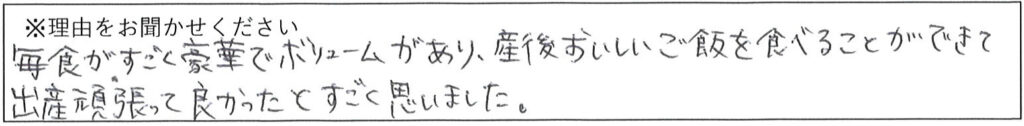 ※理由をお聞かせください
毎食がすごく豪華でボリュームがあり、産後おいしいご飯を食べることができて
出産頑張って良かったとすごく思いました。